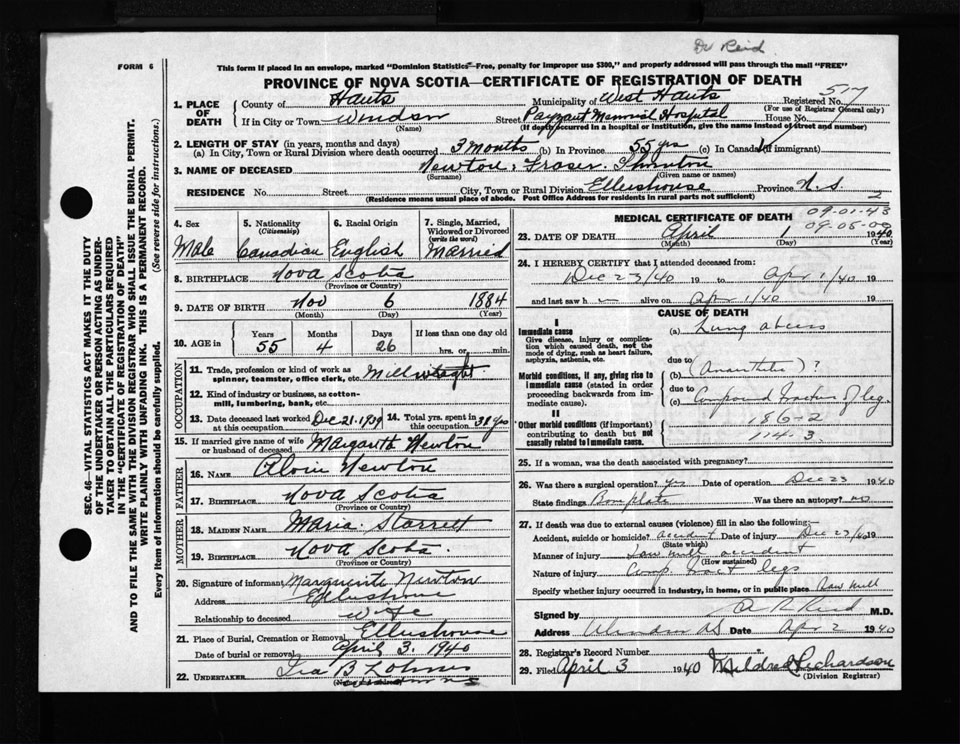 Dr Reid
FORM 6
This form if placed in an envelope, marked "Dominion Statistics—Free, penalty for improper use $300," and properly addressed will pass through the mail "FREE"
PROVINCE OF NOVA SCOTIA—CERTIFICATE OF REGISTRATION OF DEATH
517
1. PLACE OF DEATH
County of Hants Municipality of West Hants Registered No.
(For use of Registrar General only)
If in City or Town Windsor Street Payzant Memorial Hospital House No.
(Name) (If death occurred in a hospital or institution, give the name instead of street and number)
2. LENGTH OF STAY (in years, months and days)
(a) In City, Town or Rural Division where death occurred 3 months (b) In Province 55 yrs (c) In Canada (if immigrant)
3. NAME OF DECEASED Newton, Fraser Thornton
(Surname) (Given name or names)
RESIDENCE No. Street City, Town or Rural Division Ellershouse Province N.S.
(Residence means usual place of abode. Post Office Address for residents in rural parts not sufficient) 2
4. Sex
Male
5. Nationality
(Citizenship)
Canadian
6. Racial Origin
English
7. Single, Married, Widowed or Divorced
(write the word)
Married
8. BIRTHPLACE Nova Scotia
(Province or Country)
9. DATE OF BIRTH Nov 6 1884
(Month) (Day) (Year)
10. AGE in
Years Months Days If less than one day old
55 4 26 hrs. or min.
OCCUPATION
11. Trade, profession or kind of work as
spinner, teamster, office clerk, etc. Millwright
12. Kind of industry or business, as cotton-
mill, lumbering, bank, etc.
13. Date deceased last worked at this occupation Dec 21-1939
14. Total yrs. spent in this occupation 38 yrs
15. If married give name of wife
or husband of deceased Margaret Newton
FATHER
16. NAME Newton
17. BIRTHPLACE Nova Scotia
(Province or Country)
MOTHER
18. MAIDEN NAME Maria Starrett
19. BIRTHPLACE Nova Scotia.
(Province or Country)
20. Signature of informant Marguerite Newton
Address Ellershouse
Relationship to deceased wife
21. Place of Burial, Cremation or Removal Ellershouse
Date of burial or removal April 3, 1940
22. UNDERTAKER Ira B
MEDICAL CERTIFICATE OF DEATH
09-01-43
09-05-00
23. DATE OF DEATH April 1 1940
(Month) (Day) (Year)
24. I HEREBY CERTIFY that I attended deceased from:
Dec 23/40 19 to Apr 1/40 19
and last saw h m alive on Apr 1/40 19
CAUSE OF DEATH
I
Immediate cause
Give disease, injury or complication which caused death, not the mode of dying, such as heart failure, asphyxia, asthenia, etc.
(a) Lung abcess
due to
Morbid conditions, if any, giving rise to immediate cause (stated in order proceeding backwards from immediate cause).
(b) ?
due to
(c) Compound fracture of leg
II
Other morbid conditions (if important) contributing to death but not causally related to immediate cause.
186-2
114-3
25. If a woman, was the death associated with pregnancy?
26. Was there a surgical operation? yes Date of operation Dec 23 1940
State findings Was there an autopsy? no
27. If death was due to external causes (violence) fill in also the following:-
Accident, suicide or homicide? accident Date of injury Dec 23/40 19
(State which)
Manner of injury Saw mill accident
(How sustained)
Nature of injury Comp. fract legs
Specify whether injury occurred in industry, in home, or in public place Saw mill
Signed by A R Reid M.D.
Address Windsor NS Date Apr 2 1940
28. Registrar's Record Number
29. Filed April 3 1940 Mildred Richardson
(Division Registrar)
SEC. 46—VITAL STATISTICS ACT MAKES IT THE DUTY
OF THE UNDERTAKER OR PERSON ACTING AS UNDERTAKER
TO OBTAIN ALL THE PARTICULARS REQUIRED
IN THE "CERTIFICATE OF REGISTRATION OF DEATH"
AND TO FILE THE SAME WITH THE DIVISION REGISTRAR WHO SHALL ISSUE THE BURIAL PERMIT.
WRITE PLAINLY WITH UNFADING INK. THIS IS A PERMANENT RECORD.
Every item of Information should be carefully supplied. (See reverse side for instructions.)